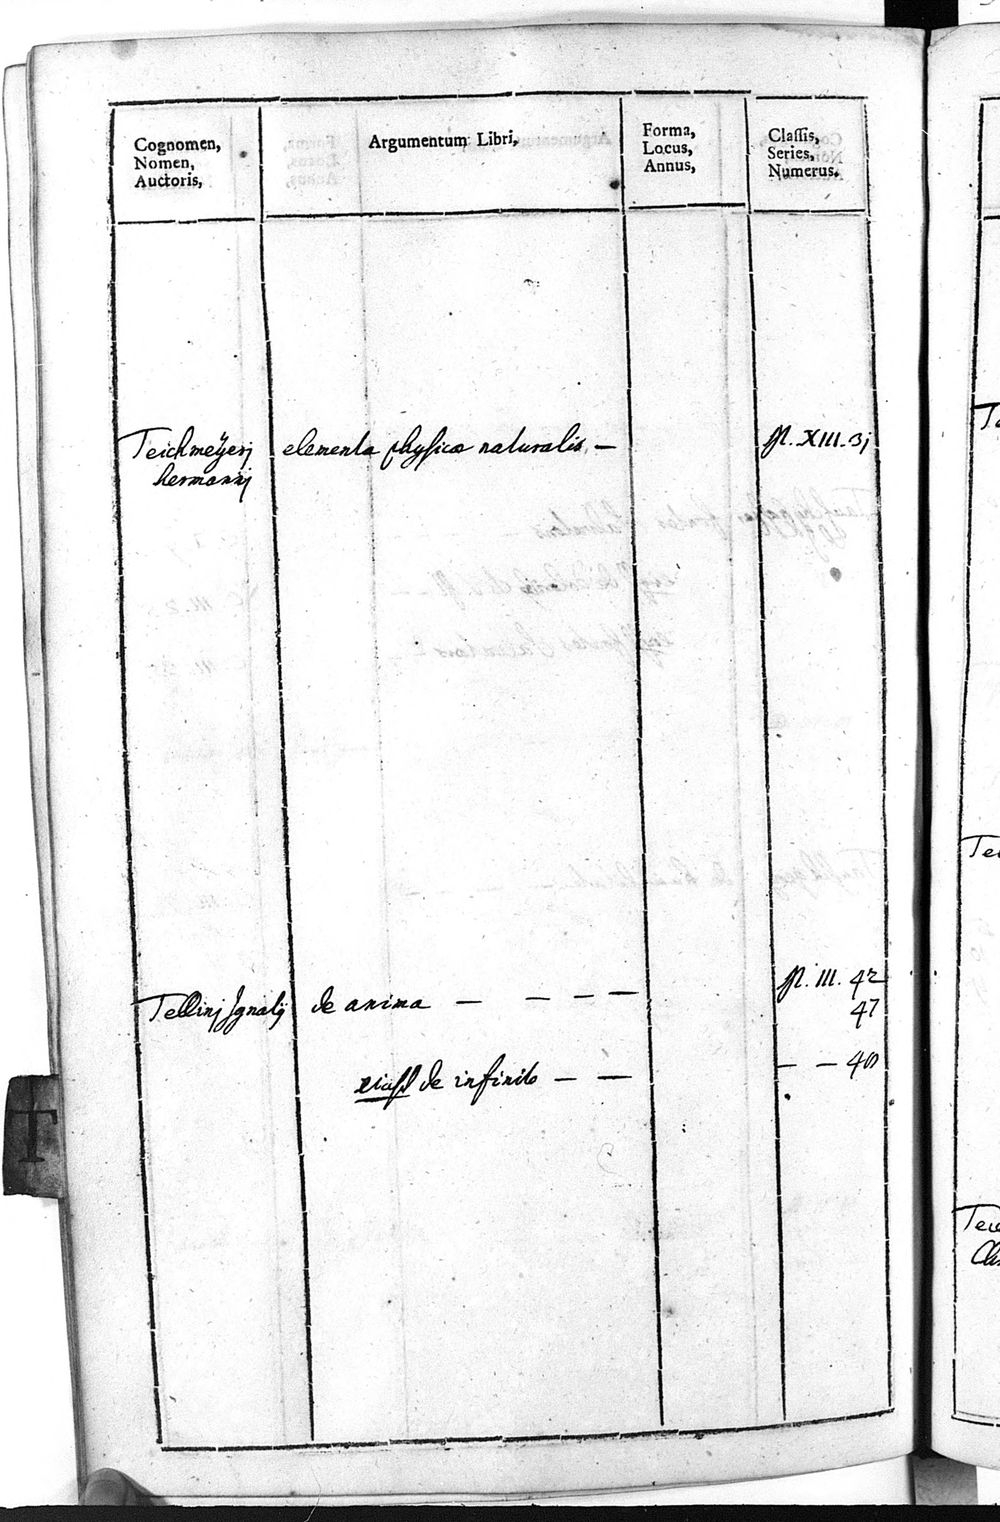 Cognomen,
Nomen,
Auctoris,
Argumentum Libri,
Forma,
Locus,
Annus,
Classis,
Series,
Numerus.
Teichmeÿerj elementa physicæ naturalis — XIII. 3j
hermannj
Tellinj Ignatij de anima — — — — III. 42
47
eiusd de infinito — — — — 48
T